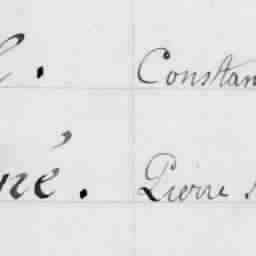 Constan
né. Pierre